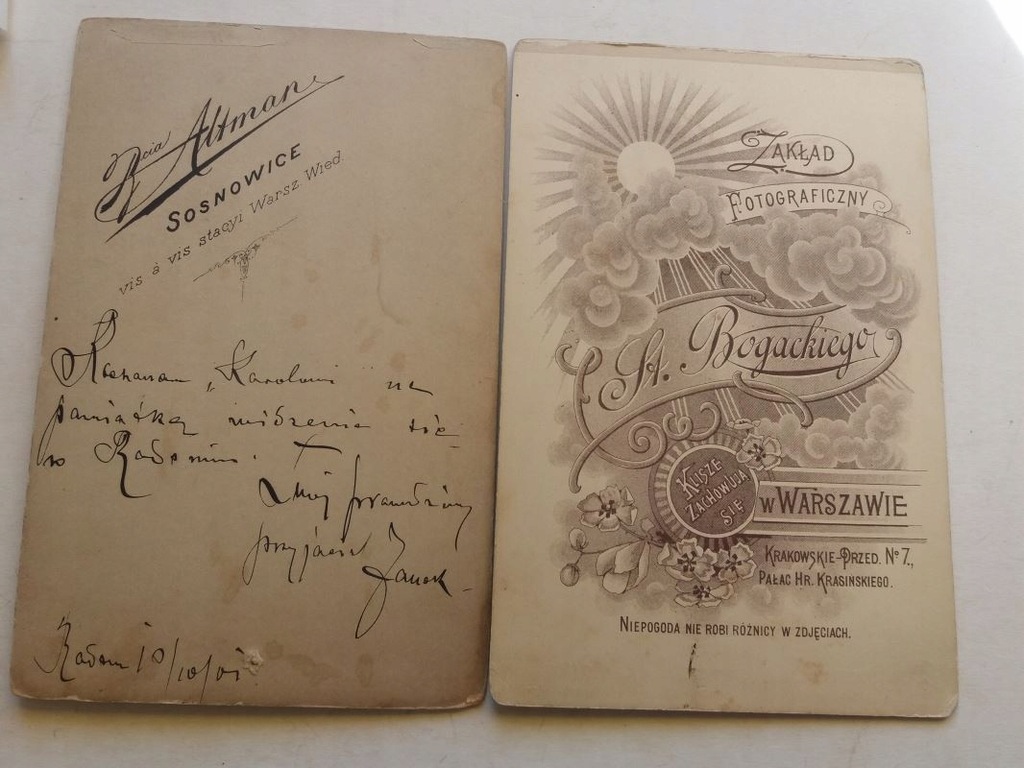 Bcia Altman
SOSNOWICE
vis à vis stacyi Warsz. Wied.
Kochanem „Karolowi" na
pamiątkę widzenia się
w Radomiu.
prawdziwy
przyjaciel Janek
Radom 10/10/01
ZAKŁAD
FOTOGRAFICZNY
St. Bogackiego
KLISZE
ZACHOWUJĄ
SIĘ
W WARSZAWIE
KRAKOWSKIE-PRZED. Nº 7.,
PAŁAC HR. KRASIŃSKIEGO.
NIEPOGODA NIE ROBI RÓŻNICY W ZDJĘCIACH.